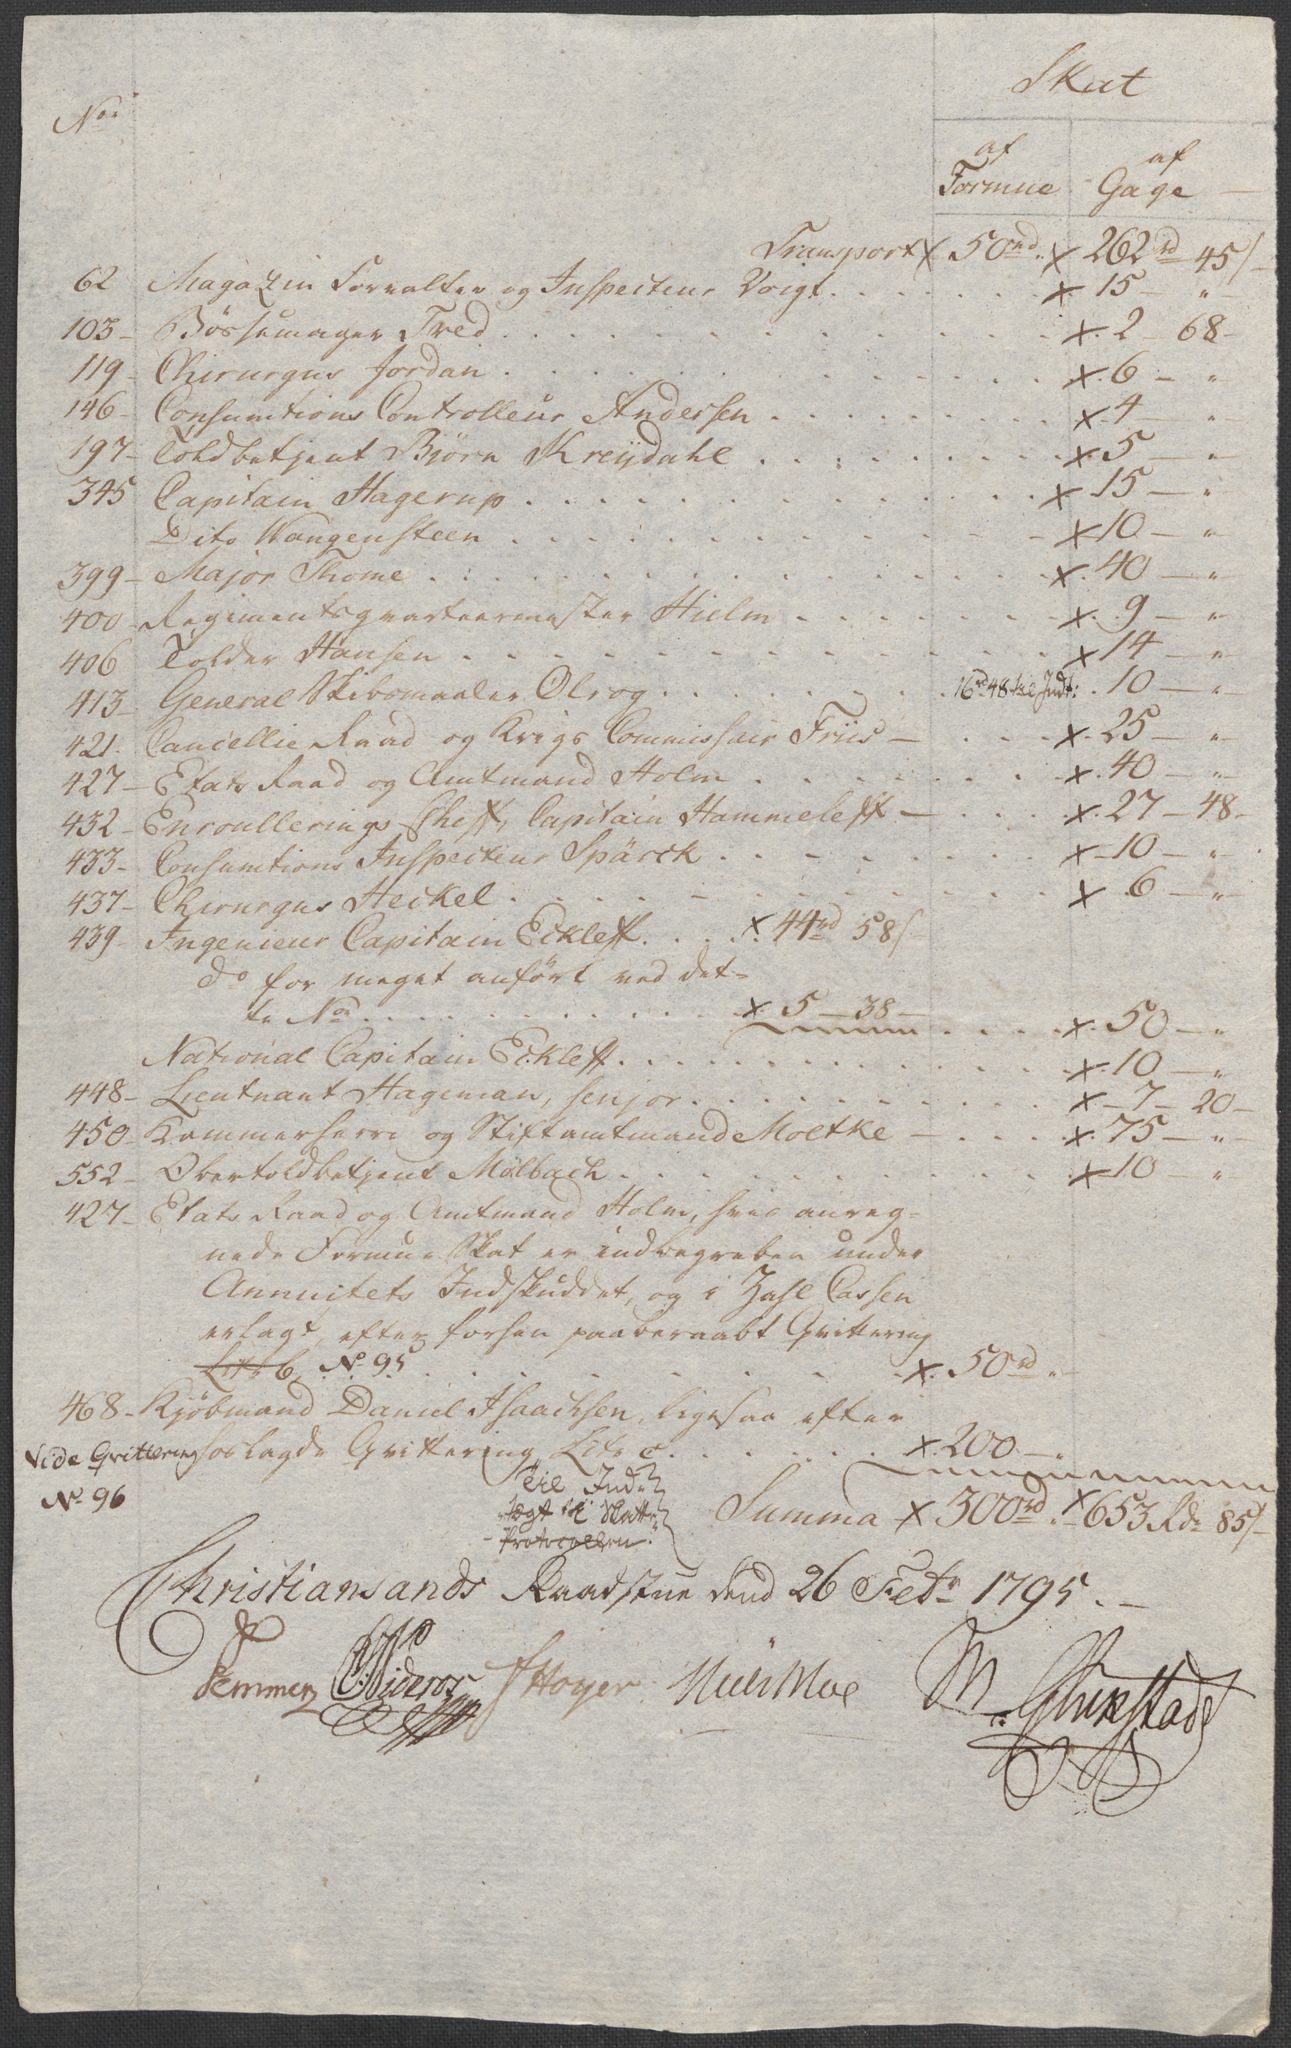 Skat
Nor
af Formue af Gage
Transport x 50 rd. x 262 rd 45 s
62 Magazin Forvalter og Inspecteur Voigt . . . x 15 - "
103 - Bøssemager Fred . . . x 2 - 68 -
119 - Chirurgus Jordan . . . x 6 - "
146 - Consumtions Controlleur Andersen . . . x 4 - "
197 - Toldbetjent Bjørn Kreijdahl . . . x 5 - "
345 Capitain Hagerup . . . x 15 - "
Dito Wangensteen . . . x 10 - "
399 - Major Thome . . . x 40 - "
400 - Regimentsqvarteermester Hielm . . . x 9 - "
406 Tolder Hansen . . . x 14 - "
413 - General Skibsmaaler Olrog . . . 16 rd 48 til Indt: . 10 - "
421 - Cancellie Raad og Krigs Commissair Friis - . . . x 25 - "
427 - Etats Raad og Amtmand Holm . . . x 40 - "
432 - Enroullerings Cheff, Capitain Hammeleff - . . . x 27 - 48 -
433 - Consumtions Inspecteur Spärck . . . x 10 - "
437 - Chirurgus Heckel . . . x 6 - "
439 - Ingenieur Capitain Eckleff . . . x 44 rd 58 s
do for meget anført ved det-
te No . . . x 5 - 38 - . . . x 50 - "
National Capitain Eckleff . . . x 10 - "
448 - Lieutnant Hageman, senjor . . . x 7 - 20 -
450 - Kammerherre og Stiftamtmand Moltke - . . . x 75 - "
552 - Obertoldbetjent Mølbach . . . x 10 - "
427 - Etats Raad og Amtmand Holm, hvis anreg-
nede Formue Skat er indbegreben under
Annuitets Indskuddet, og i Zahl Cassen
erlagt, efter forhen paaberaabt Qvittering
Litr b, No 95 . . . x 50 rd "
468 - Kjøbmand Daniel Isaachsen, ligesaa efter
Vide Qvittering hoslagde Qvittering Litr c . . . x 200 - "
No 96
Til Ind-
tægt til Skatte
Protocollen.
Summa x 300 rd. x 653 Rdr 85 s
Christiansands Raadstue dend 26 Febr 1795. -
Nideros FHoyer Niels Moe M. Glükstad